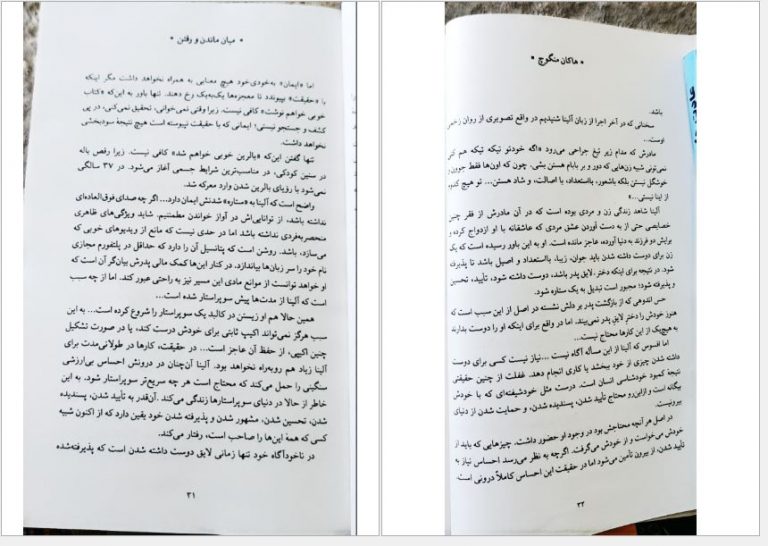 • میان ماندن و رفتن •
اما «ایمان» به‌خودی‌خود هیچ معنایی به همراه نخواهد داشت مگر اینکه
را «حقیقت» بپیوندد تا معجزه‌ها یک‌به‌یک رخ دهند. تنها باور به این‌که «کتاب
خوبی خواهم نوشت» کافی نیست. زیرا وقتی نمی‌خوانی، تحقیق نمی‌کنی، در پی
کشف و جستجو نیستی؛ ایمانی که با حقیقت نپیوسته است هیچ نتیجهٔ سودبخشی
نخواهد داشت.
تنها گفتن این‌که «بالرین خوبی خواهم شد» کافی نیست. زیرا رقص باله
در سنین کودکی، در مناسب‌ترین شرایط جسمی آغاز می‌شود. در ۳۷ سالگی
نمی‌شود با رؤیای بالرین شدن وارد معرکه شد.
واضح است که آلینا به «ستاره» شدنش ایمان دارد... اگر چه صدای فوق‌العاده‌ای
نداشته باشد، از توانایی‌اش در آواز خواندن مطمئنیم. شاید ویژگی‌های ظاهری
منحصربه‌فردی نداشته باشد اما در حدی نیست که مانع از ویدیوهای خوبی که
می‌سازد، باشد. روشن است که پتانسیل آن را دارد که حداقل در پلتفورم مجازی
نام خود را سر زبان‌ها بیاندازد. در کنار این‌ها کمک مالی پدرش بیان‌گر آن است که
او خواهد توانست از موانع مادی این مسیر نیز به راحتی عبور کند. اما از چه سبب
است که آلینا از مدت‌ها پیش سوپراستار شده است...
همین حالا هم او زیستن در کالبد یک سوپراستار را شروع کرده است... به این
سبب هرگز نمی‌تواند اکیپ ثابتی برای خودش درست کند، یا در صورت تشکیل
چنین اکیپی، از حفظ آن عاجز است... در حقیقت، کارها در طولانی‌مدت برای
آلینا زیاد هم روبه‌راه نخواهد بود. آلینا آن‌چنان در درونش احساس بی‌ارزشی
سنگینی را حمل می‌کند که محتاج است هر چه سریع‌تر سوپراستار شود. به این
خاطر از حالا در دنیای سوپراستارها زندگی می‌کند. آن‌قدر به تأیید شدن، پسندیده
شدن، تحسین شدن، مشهور شدن و پذیرفته شدن خود یقین دارد که از اکنون شبیه
کسی که همهٔ این‌ها را صاحب است، رفتار می‌کند.
در ناخودآگاه خود تنها زمانی لایق دوست داشته شدن است که پذیرفته‌شده
۳۱
• هاکان منگوچ •
باشد.
سخنانی که در آخر اجرا از زبان آلینا شنیدیم در واقع تصویری از روان زخمی
اوست...
مادرش که مدام زیر تیغ جراحی می‌رود «اگه خودتو تیکه تیکه هم کنی
نمی‌تونی شبیه زن‌هایی که دور و بر بابام هستن بشی، چون که اون‌ها فقط جوون و
خوشگل نیستن بلکه باشعور، بااستعداد، با اصالت، و شاد هستن... تو هیچ کدوم
از اینا نیستی...»
آلینا شاهد زندگی زن و مردی بوده است که در آن مادرش از فقر چنین
خصایصی حتی از به دست آوردن عشق مردی که عاشقانه با او ازدواج کرده و
برایش دو فرزند به دنیا آورده، عاجز مانده است. او به این باور رسیده است که یک
زن برای دوست داشته شدن باید جوان، زیبا، بااستعداد و اصیل باشد تا پذیرفته
شود. در نتیجه برای اینکه دختر لایق پدر باشد، دوست داشته شود، تأیید، تحسین
و پذیرفته شود؛ مجبور است تبدیل به یک ستاره شود.
حس اندوهی که از بازگشت پدر بر دلش نشسته در اصل از این سبب است که
هنوز خودش را دختر لایق پدر نمی‌بیند. اما در واقع برای اینکه او را دوست بدارند
به هیچ‌یک از این کارها محتاج نیست...
اما افسوس که آلینا از این مسأله آگاه نیست ...نیاز نیست کسی برای دوست
داشته شدن چیزی از خود ببخشد یا کاری انجام دهد. غفلت از چنین حقیقتی
نتیجهٔ کمبود خودشناسی انسان است. درست مثل خودشیفته‌ای که با خودش
بیگانه است و ازاین‌رو محتاج تأیید شدن، پسندیده شدن، و حمایت شدن از دنیای
بیرونیست.
در اصل هر آنچه محتاجش بود در وجود او حضور داشت. چیزهایی که باید از
خودش می‌خواست و از خودش می‌گرفت. اگرچه به نظر می‌رسد احساس نیاز به
تأیید شدن، از بیرون تأمین می‌شود اما در حقیقت این احساس کاملاً درونی است.
۳۲